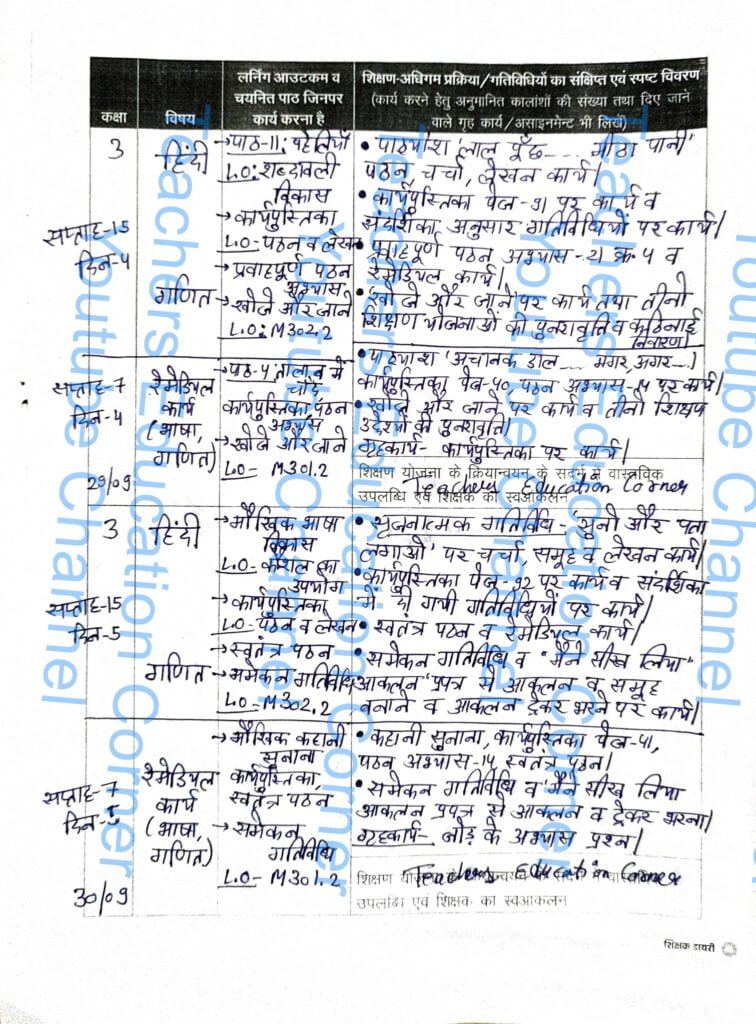 कक्षा
विषय
लर्निंग आउटकम व
चयनित पाठ जिनपर
कार्य करना है
शिक्षण-अधिगम प्रक्रिया/गतिविधियों का संक्षिप्त एवं स्पष्ट विवरण
(कार्य करने हेतु अनुमानित कालांशों की संख्या तथा दिए जाने
वाले गृह कार्य/असाइनमेन्ट भी लिखें)
3
सप्ताह-15
दिन-4
हिंदी
गणित
→पाठ-11: पहेलियाँ
L.O: शब्दावली
विकास
→कार्यपुस्तिका
L.O- पठन व लेखन
→प्रवाहपूर्ण पठन
अभ्यास
→खोजें और जाने
L.O: M302.2
• पाठ्यांश 'लाल पूँछ --- मीठा पानी'
पठन, चर्चा, लेखन कार्य।
• कार्यपुस्तिका पेज-91 पर कार्य व
संदर्शिका अनुसार गतिविधियों पर कार्य।
• प्रवाहपूर्ण पठन अभ्यास-21 क्र 4 व
रेमेडियल कार्य।
• 'खोजें और जाने' पर कार्य तथा तीनो
शिक्षण योजनाओं की पुनरावृत्ति व कठिनाई
निवारण।
सप्ताह-7
दिन-4
29/09
रेमेडियल
कार्य
(भाषा,
गणित)
→पाठ-4, तालाब में
चाँद
कार्यपुस्तिका, पठन
अभ्यास
→खोजें और जाने
L.O- M301.2
• पाठ्यांश 'अचानक डाल --- मगर, अगर---।
कार्यपुस्तिका पेज-40 पठन अभ्यास-14 पर कार्य।
• खोजें और जाने पर कार्य व तीनो शिक्षण
उद्देश्यों की पुनरावृति।
गृहकार्य- कार्यपुस्तिका पर कार्य।
शिक्षण योजना के क्रियान्वयन के संदर्भ में वास्तविक
उपलब्धि एवं शिक्षक का स्वआकलन
Teachers Education Corner
3
सप्ताह-15
दिन-5
हिंदी
गणित
→मौखिक भाषा
विकास
L.O- कौशल का
उपयोग
→कार्यपुस्तिका
L.O- पठन व लेखन
→स्वतंत्र पठन
→समेकन गतिविधि
L.O- M302.2
• सृजनात्मक गतिविधि- 'सुनो और पता
लगाओ' पर चर्चा, समूह व लेखन कार्य।
• कार्यपुस्तिका पेज-92 पर कार्य व संदर्शिका
में दी गयी गतिविधियों पर कार्य।
• स्वतंत्र पठन व रेमेडियल कार्य।
• समेकन गतिविधि व "मैंने सीख लिया"
आकलन प्रपत्र से आकलन व समूह
बनाने व आकलन ट्रैकर भरने पर कार्य।
सप्ताह-7
दिन-5
30/09
रेमेडियल
कार्य
(भाषा,
गणित)
→मौखिक कहानी
सुनाना
कार्यपुस्तिका,
स्वतंत्र पठन
→समेकन
गतिविधि
L.O- M301.2
• कहानी सुनाना, कार्यपुस्तिका पेज-41,
पठन अभ्यास-14, स्वतंत्र पठन।
• समेकन गतिविधि व 'मैंने सीख लिया
आकलन प्रपत्र से आकलन व ट्रैकर भरना।
गृहकार्य- जोड़ के अभ्यास प्रश्न।
शिक्षण
Teachers Education Corner
उपलब्धि एवं शिक्षक का स्वआकलन
शिक्षक डायरी
Teachers Education Corner
Youtube Channel
Teachers Education Corner
Youtube Channel
Teachers Education Corner
Youtube Channel